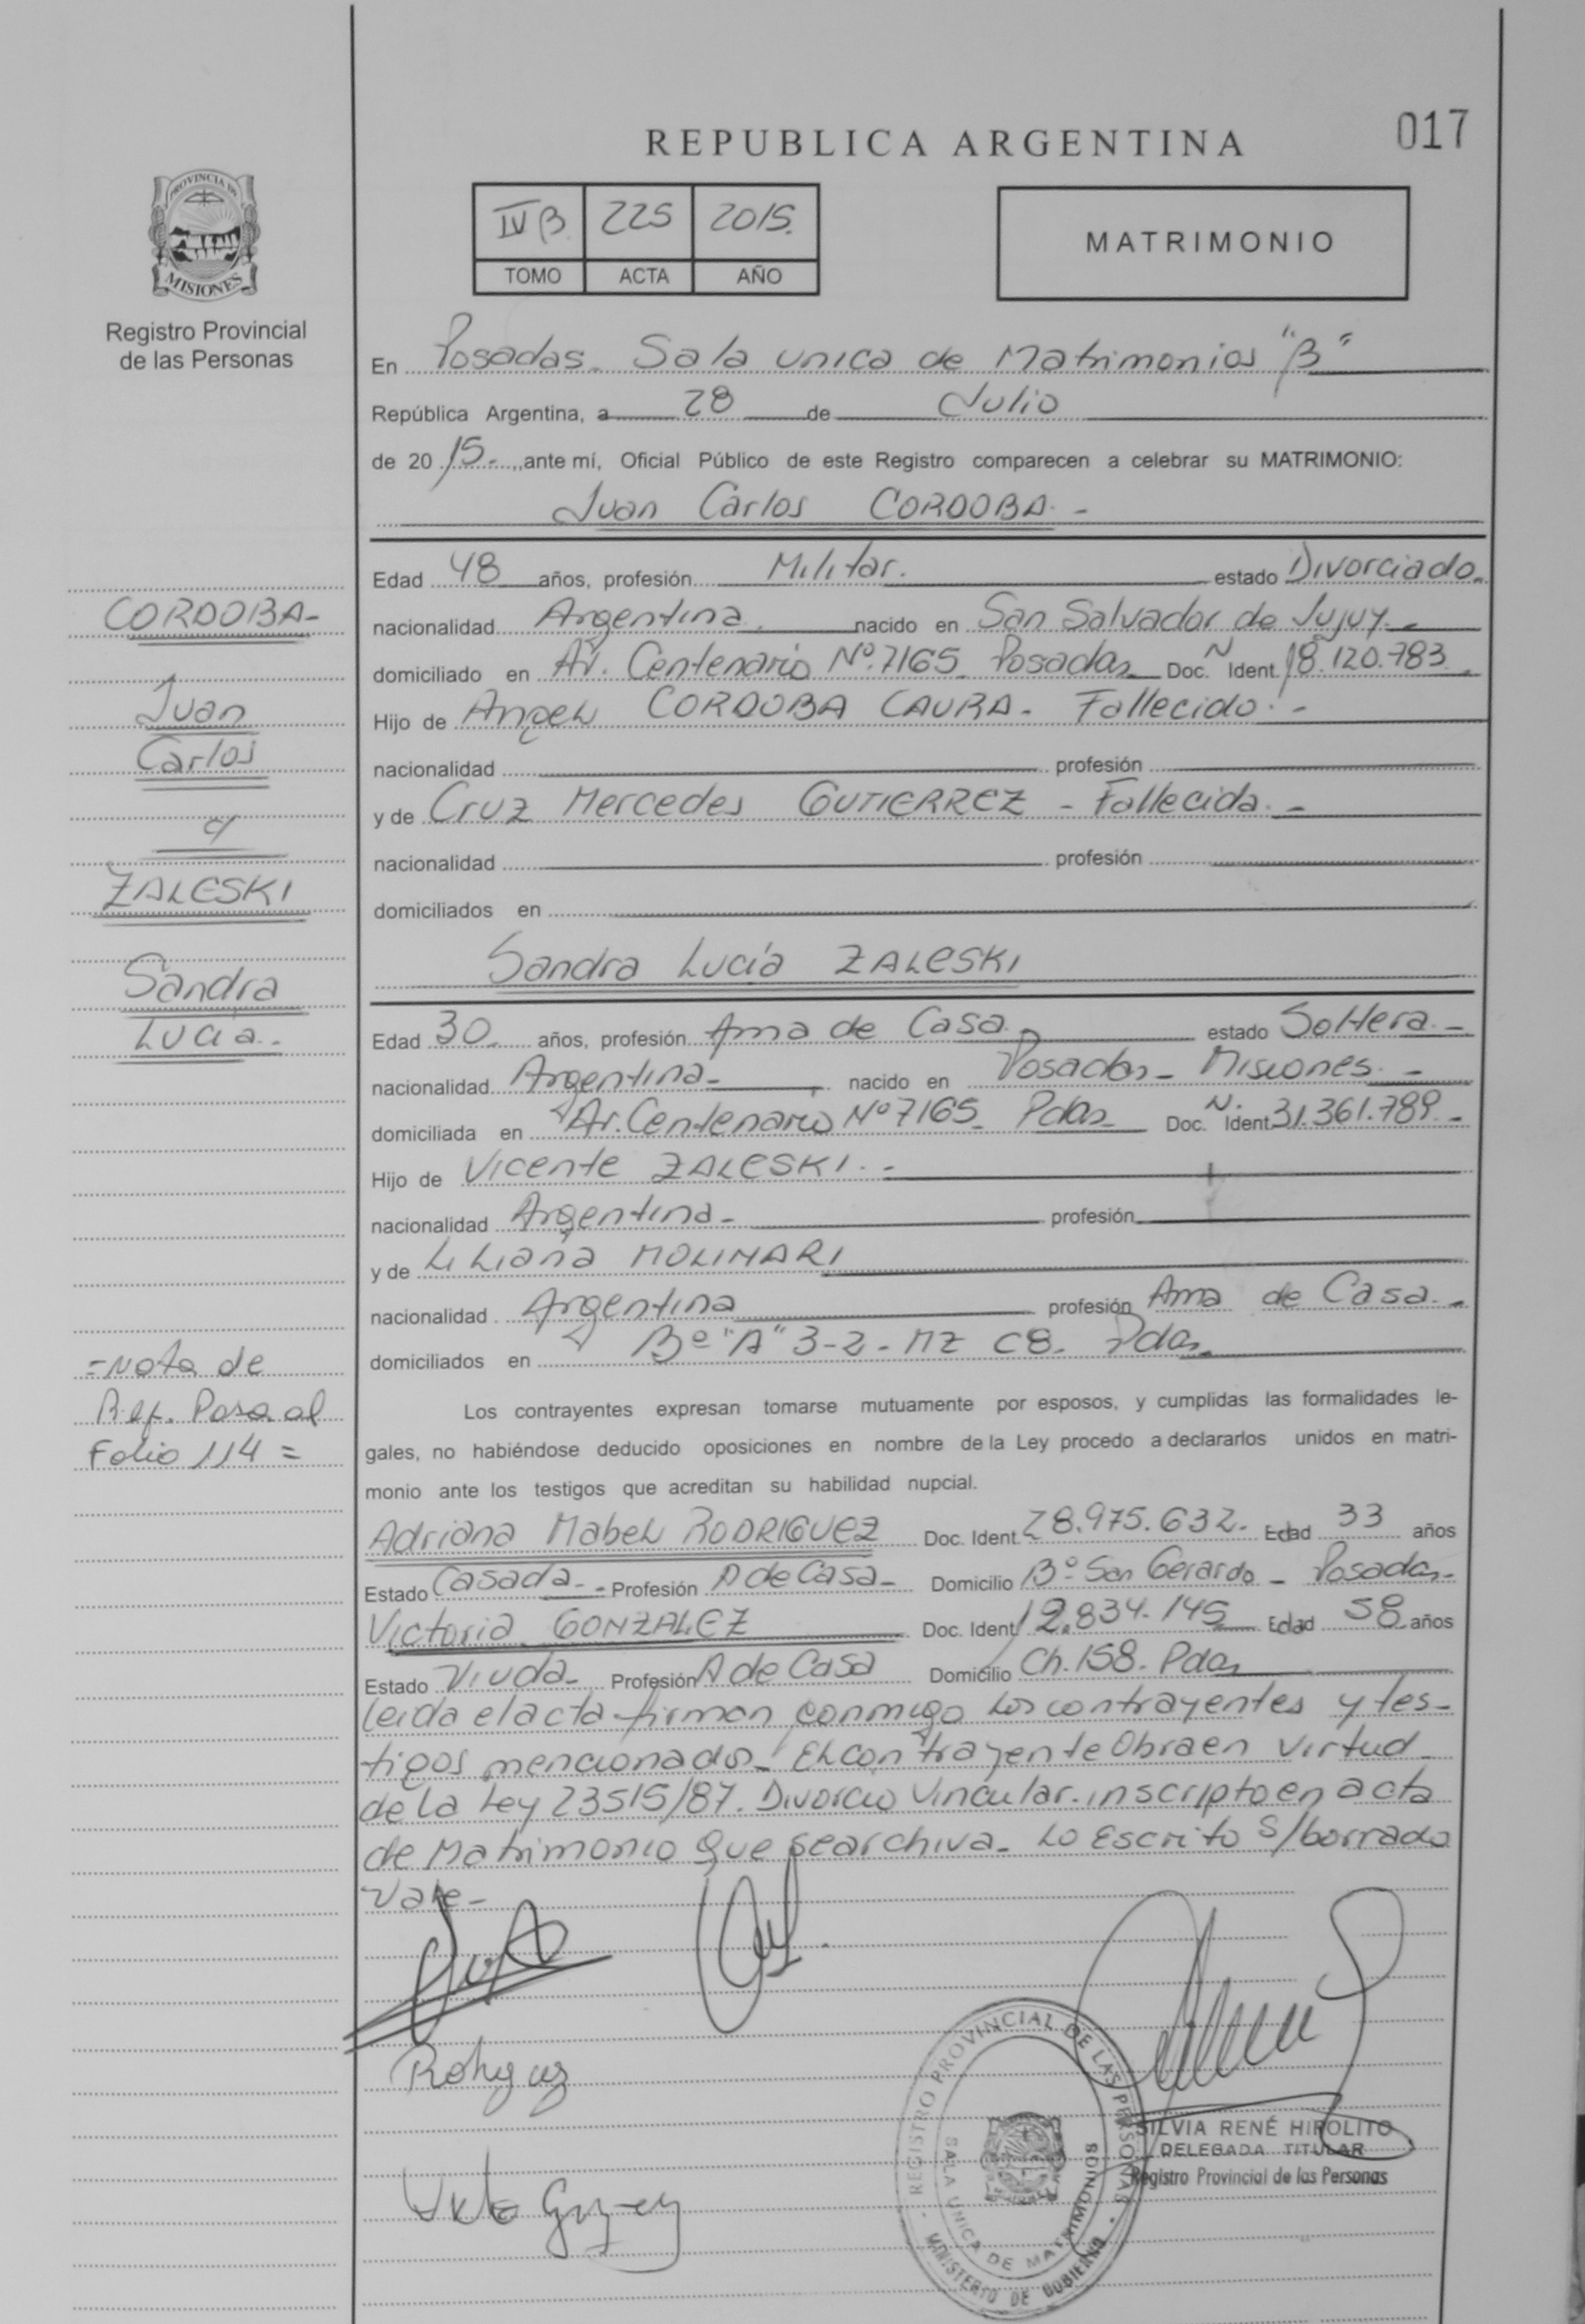 REPUBLICA ARGENTINA
017
PROVINCIA DE
MISIONES
Registro Provincial
de las Personas
IV B. 225 2015.
TOMO ACTA AÑO
MATRIMONIO
En Posadas. Sala unica de Matrimonios "B"
República Argentina, a 28 de Julio
de 20 15.- ,,ante mí, Oficial Público de este Registro comparecen a celebrar su MATRIMONIO:
Juan Carlos CORDOBA. -
Edad 48 años, profesión Militar. estado Divorciado.
nacionalidad Argentina. nacido en San Salvador de Jujuy. -
domiciliado en Av. Centenario Nº.7165 Posadas Doc. N Ident. 18.120.783.
Hijo de Angel CORDOBA CAURA - Fallecido. -
nacionalidad profesión
y de Cruz Mercedes GUTIERREZ - Fallecida. -
nacionalidad profesión
domiciliados en
Sandra Lucía ZALESKI
Edad 30 años, profesión Ama de Casa. estado Soltera. -
nacionalidad Argentina - nacido en Posadas - Misiones. -
domiciliada en Av. Centenario Nº 7165 - Pdas Doc. N. Ident. 31.361.789 -
Hijo de Vicente ZALESKI. -
nacionalidad Argentina - profesión
y de Liliana MOLINARI
nacionalidad Argentina profesión Ama de Casa. -
domiciliados en Bº "A" 3-2 - MZ C8. Pdas
Los contrayentes expresan tomarse mutuamente por esposos, y cumplidas las formalidades le-
gales, no habiéndose deducido oposiciones en nombre de la Ley procedo a declararlos unidos en matri-
monio ante los testigos que acreditan su habilidad nupcial.
Adriana Mabel RODRIGUEZ Doc. Ident. 28.975.632. Edad 33 años
Estado Casada - Profesión A de Casa - Domicilio Bº San Gerardo - Posadas -
Victoria GONZALEZ Doc. Ident. 12.834.145 Edad 58 años
Estado Viuda - Profesión A de Casa Domicilio Ch. 158 - Pdas
leida el acta firman conmigo los contrayentes y tes-
tigos mencionados - El contrayente Obra en Virtud
de la Ley 23515/87. Divorcio Vincular inscripto en acta
de Matrimonio que se archiva - Lo Escrito S/borrado
Vale -
CORDOBA -
Juan
Carlos
c/
ZALESKI
Sandra
Lucia -
= Nota de
Ref. Pasa al
Folio 114 =
REGISTRO PROVINCIAL DE LAS PERSONAS
SALA UNICA DE MATRIMONIOS
MINISTERIO DE GOBIERNO
SILVIA RENÉ HIPOLITO
DELEGADA TITULAR
Registro Provincial de las Personas